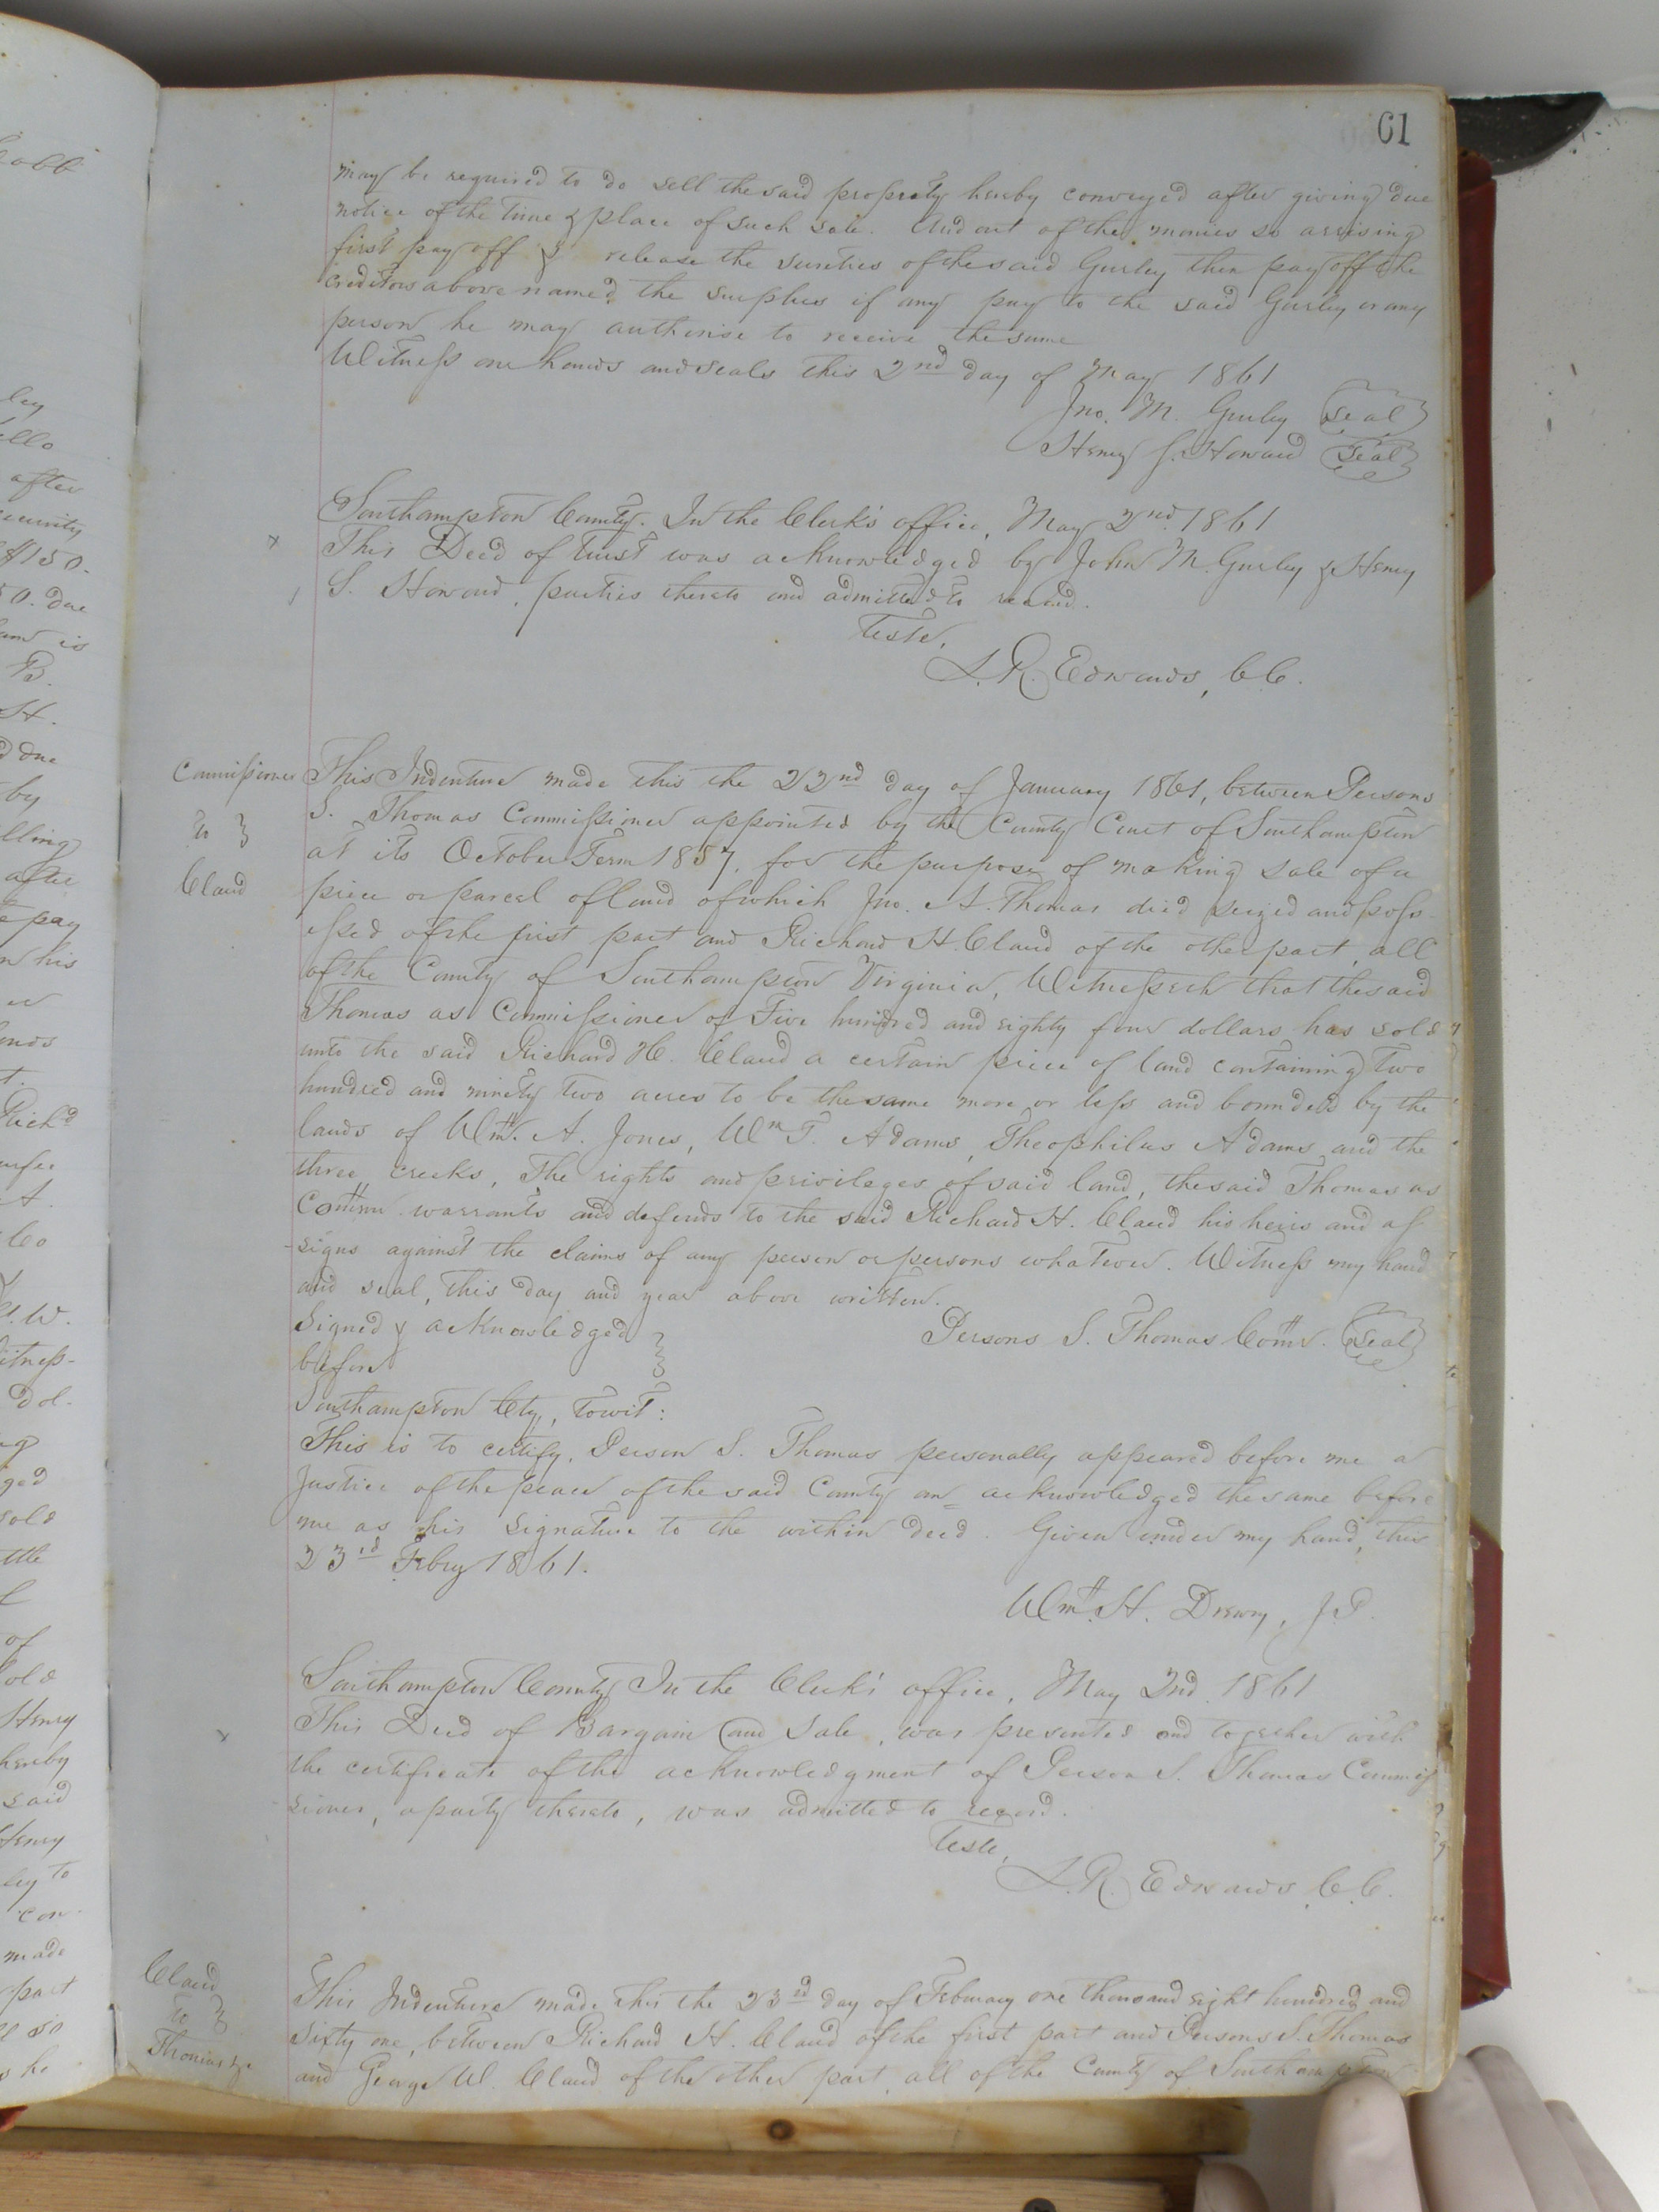 61
may be required to do sell the said property hereby conveyed after giving due
notice of the time & place of such sale. And out of the monies so arrising
first pay off & release the sureties of the said Gurley then pay off the
creditors above named the surplus if any pay to the said Gurley or any
person he may authorise to receive the same
Witness our hands and seals this 2nd day of May 1861
Jno. M. Gurley Seal
Henry S. Howard Seal
Southampton County. In the Clerk's office, May 2nd. 1861
This Deed of Trust was acknowledged by John M. Gurley & Henry
S. Howard, parties thereto and admitted to record.
Teste,
L. R. Edwards, C.C.
Commissioner
to
Claud
This Indenture made this the 22nd day of January 1861, between Persons
S. Thomas Commissioner appointed by the County Court of Southampton
at its October Term 1857, for the purpose of making sale of a
piece or parcel of land of which Jno. A. Thomas died seized and poss-
essed of the first part and Richard H. Claud of the other part, all
of the County of Southampton Virginia, Witnesseth that the said
Thomas as Commissioner of Five hundred and eighty four dollars has sold
unto the said Richard H. Claud a certain piece of land containing Two
hundred and ninety two acres to be the same more or less and bounded by the
lands of Wm. A. Jones, Wm T. Adams, Theophilus Adams and the
three creeks, The rights and privileges of said land, the said Thomas as
Comm. warrants and defends to the said Richard H. Claud his heirs and as
-signs against the claims of any person or persons whatever. Witness my hand
and seal, this day and year above written.
Signed & acknowledged
before
Persons S. Thomas Comr. Seal
Southampton Cty, Towit:
This is to certify, Person S. Thomas personally appeared before me a
Justice of the peace of the said County an= acknowledged the same before
me as his signature to the within deed. Given under my hand, this
23rd Febry 1861.
Wm. H. Drewry, J.P.
Southampton County In the Clerk's office, May 2nd. 1861
This Deed of Bargain and Sale, was presented and together with
the certificate of the acknowledgment of Person S. Thomas Commis
sioner, a party thereto, was admitted to record.
Teste,
L. R. Edwards, C.C.
Claud
to
Thomas &c
This Indenture made this the 23rd day of February one thousand eight hundred and
sixty one, between Richard H. Claud of the first part and Persons S. Thomas
and George W. Claud of the other part, all of the County of Southampton